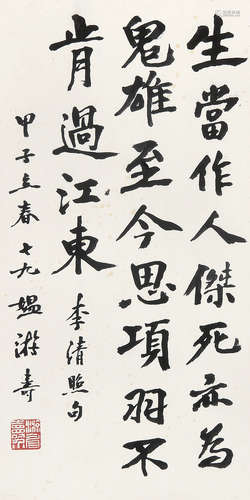 生當作人傑死亦為
鬼雄至今思項羽不
肯過江東 李清照句
甲子立春七九媼游壽